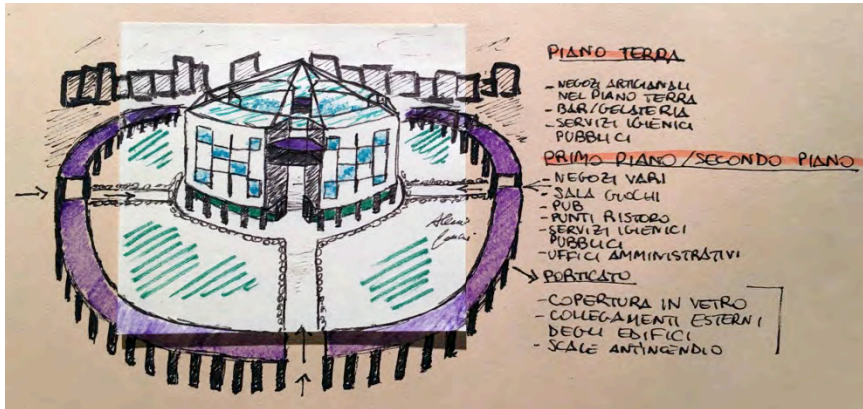 PIANO TERRA
- NEGOZI ARTIGIANALI
NEL PIANO TERRA
- BAR/GELATERIA
- SERVIZI IGIENICI
PUBBLICI
PRIMO PIANO/SECONDO PIANO
- NEGOZI VARI
- SALA GIOCHI
- PUB
- PUNTI RISTORO
- SERVIZI IGIENICI
PUBBLICI
- UFFICI AMMINISTRATIVI
PORTICATO
- COPERTURA IN VETRO
- COLLEGAMENTI ESTERNI
DEGLI EDIFICI
- SCALE ANTINCENDIO